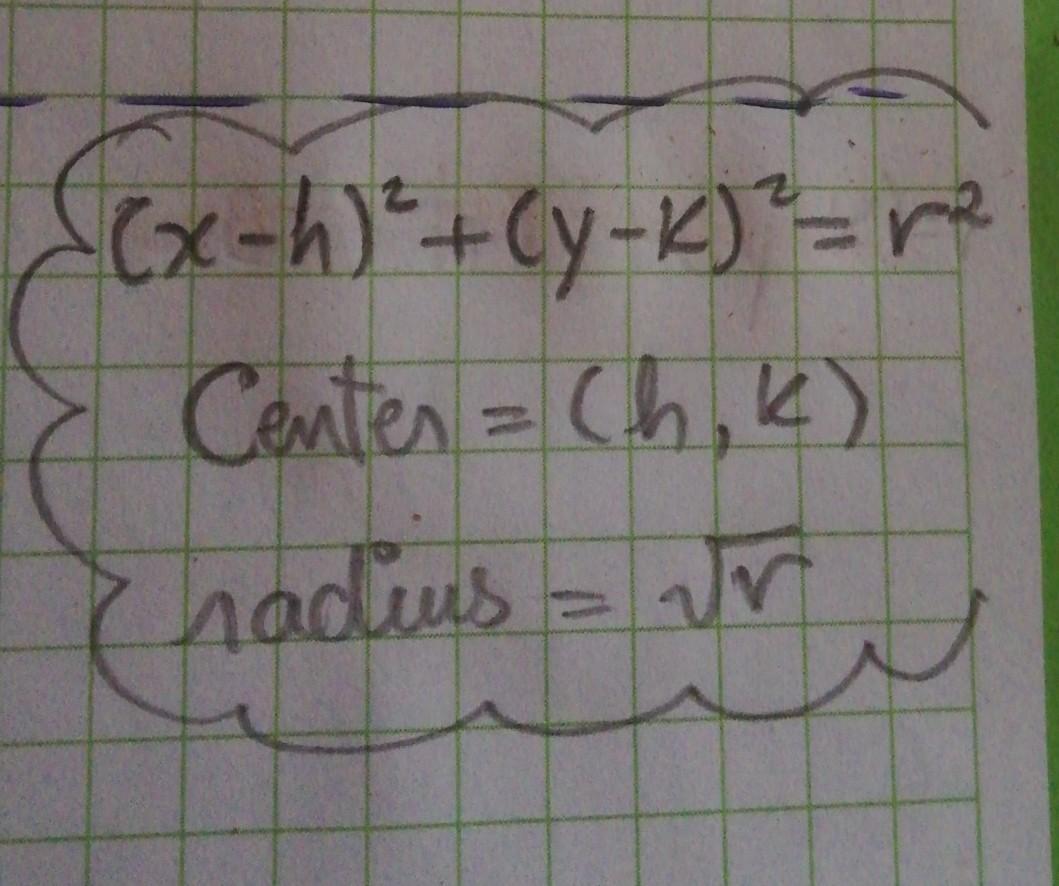 (x-h)² + (y-k)² = r²
Center = (h, k)
radius = √r